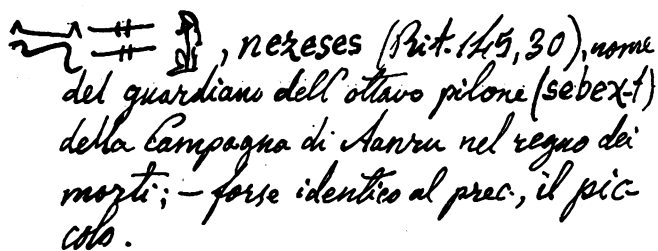 , nezeses (Rit. 145, 30), nome
del guardiano dell'ottavo pilone (sebex-t)
della Campagna di Aanru nel regno dei
morti; – forse identico al prec., il pic-
colo.